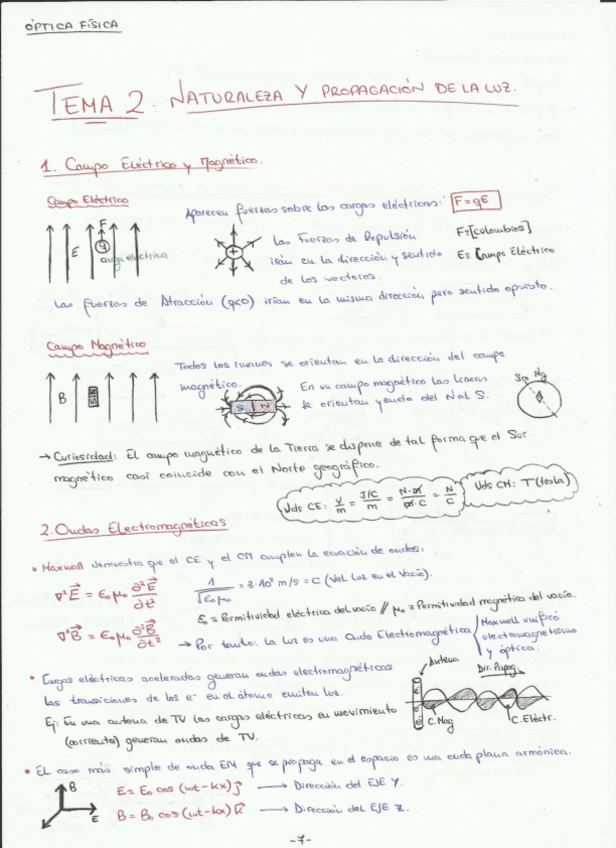 ÓPTICA FÍSICA
TEMA 2. NATURALEZA Y PROPAGACIÓN DE LA LUZ.
1. Campo Eléctrico y Magnético.
Campo Eléctrico
Aparecen fuerzas sobre las cargas eléctricas: F=qE
F
E
q
carga eléctrica
+
Las Fuerzas de Repulsión
irán en la dirección y sentido
de los vectores.
F=[colombios]
E= Campo Eléctrico
Las fuerzas de Atracción (q<0) irían en la misma dirección pero sentido opuesto.
Campo Magnético
Todos los imanes se orientan en la dirección del campo
magnético.
B
S N
En un campo magnético las líneas
se orientan yendo del N al S.
Sm Ng
→ Curiosidad: El campo magnético de la Tierra se dispone de tal forma que el Sur
magnético casi coincide con el Norte geográfico.
Uds CE: V/m = J/C/m = N·m/m·C = N/C
Uds CM: T (tesla)
2. Ondas Electromagnéticas.
• Maxwell demuestra que el CE y el CM cumplen la ecuación de ondas:
∇²E⃗ = ε₀μ₀ ∂²E⃗/∂t²
1/√ε₀μ₀ = 3·10⁸ m/s = C (Vel. Luz en el Vacío).
ε₀ = Permitividad eléctrica del vacío // μ₀ = Permitividad magnética del vacío.
∇²B⃗ = ε₀μ₀ ∂²B⃗/∂t²
→ Por tanto: la luz es una Onda Electromagnética
Maxwell unificó
electromagnetismo
y óptica.
• Cargas eléctricas aceleradas generan ondas electromagnéticas.
Las transiciones de los e⁻ en el átomo emiten luz.
Ej: En una antena de TV las cargas eléctricas en movimiento
(corriente) generan ondas de TV.
Antena
Dir. Propag.
C. Mag
C. Eléctr.
• El caso más simple de onda EM que se propaga en el espacio es una onda plana armónica.
B
E
E = E₀ cos (ωt - kx) j⃗ → Dirección del EJE Y.
B = B₀ cos (ωt - kx) k⃗ → Dirección del EJE Z.
-7-